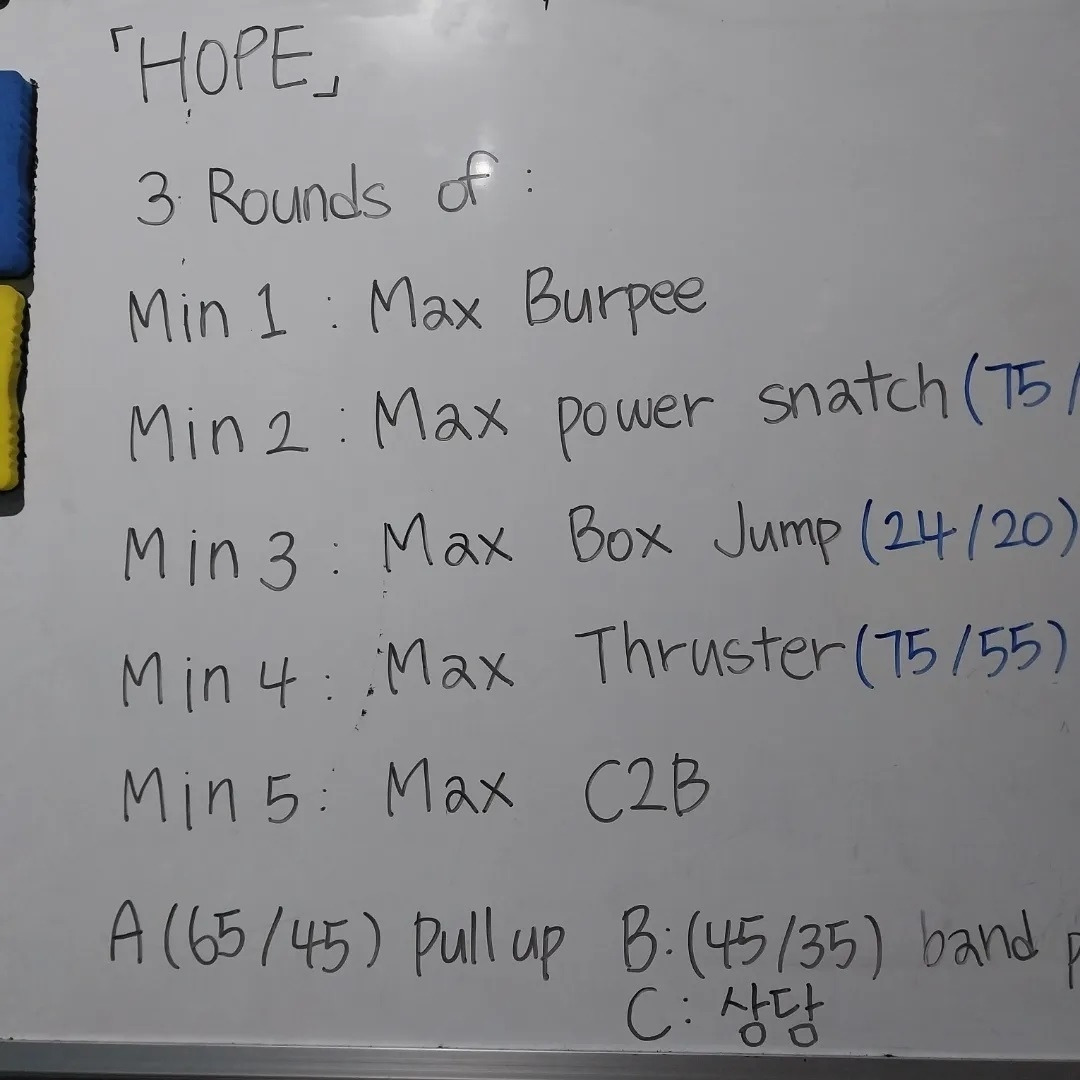 「HOPE」
3 Rounds of :
Min 1 : Max Burpee
Min 2 : Max power snatch (75/
Min 3 : Max Box Jump (24/20)
Min 4 : Max Thruster (75/55)
Min 5 : Max C2B
A (65/45) Pull up B: (45/35) band p
C: 상담